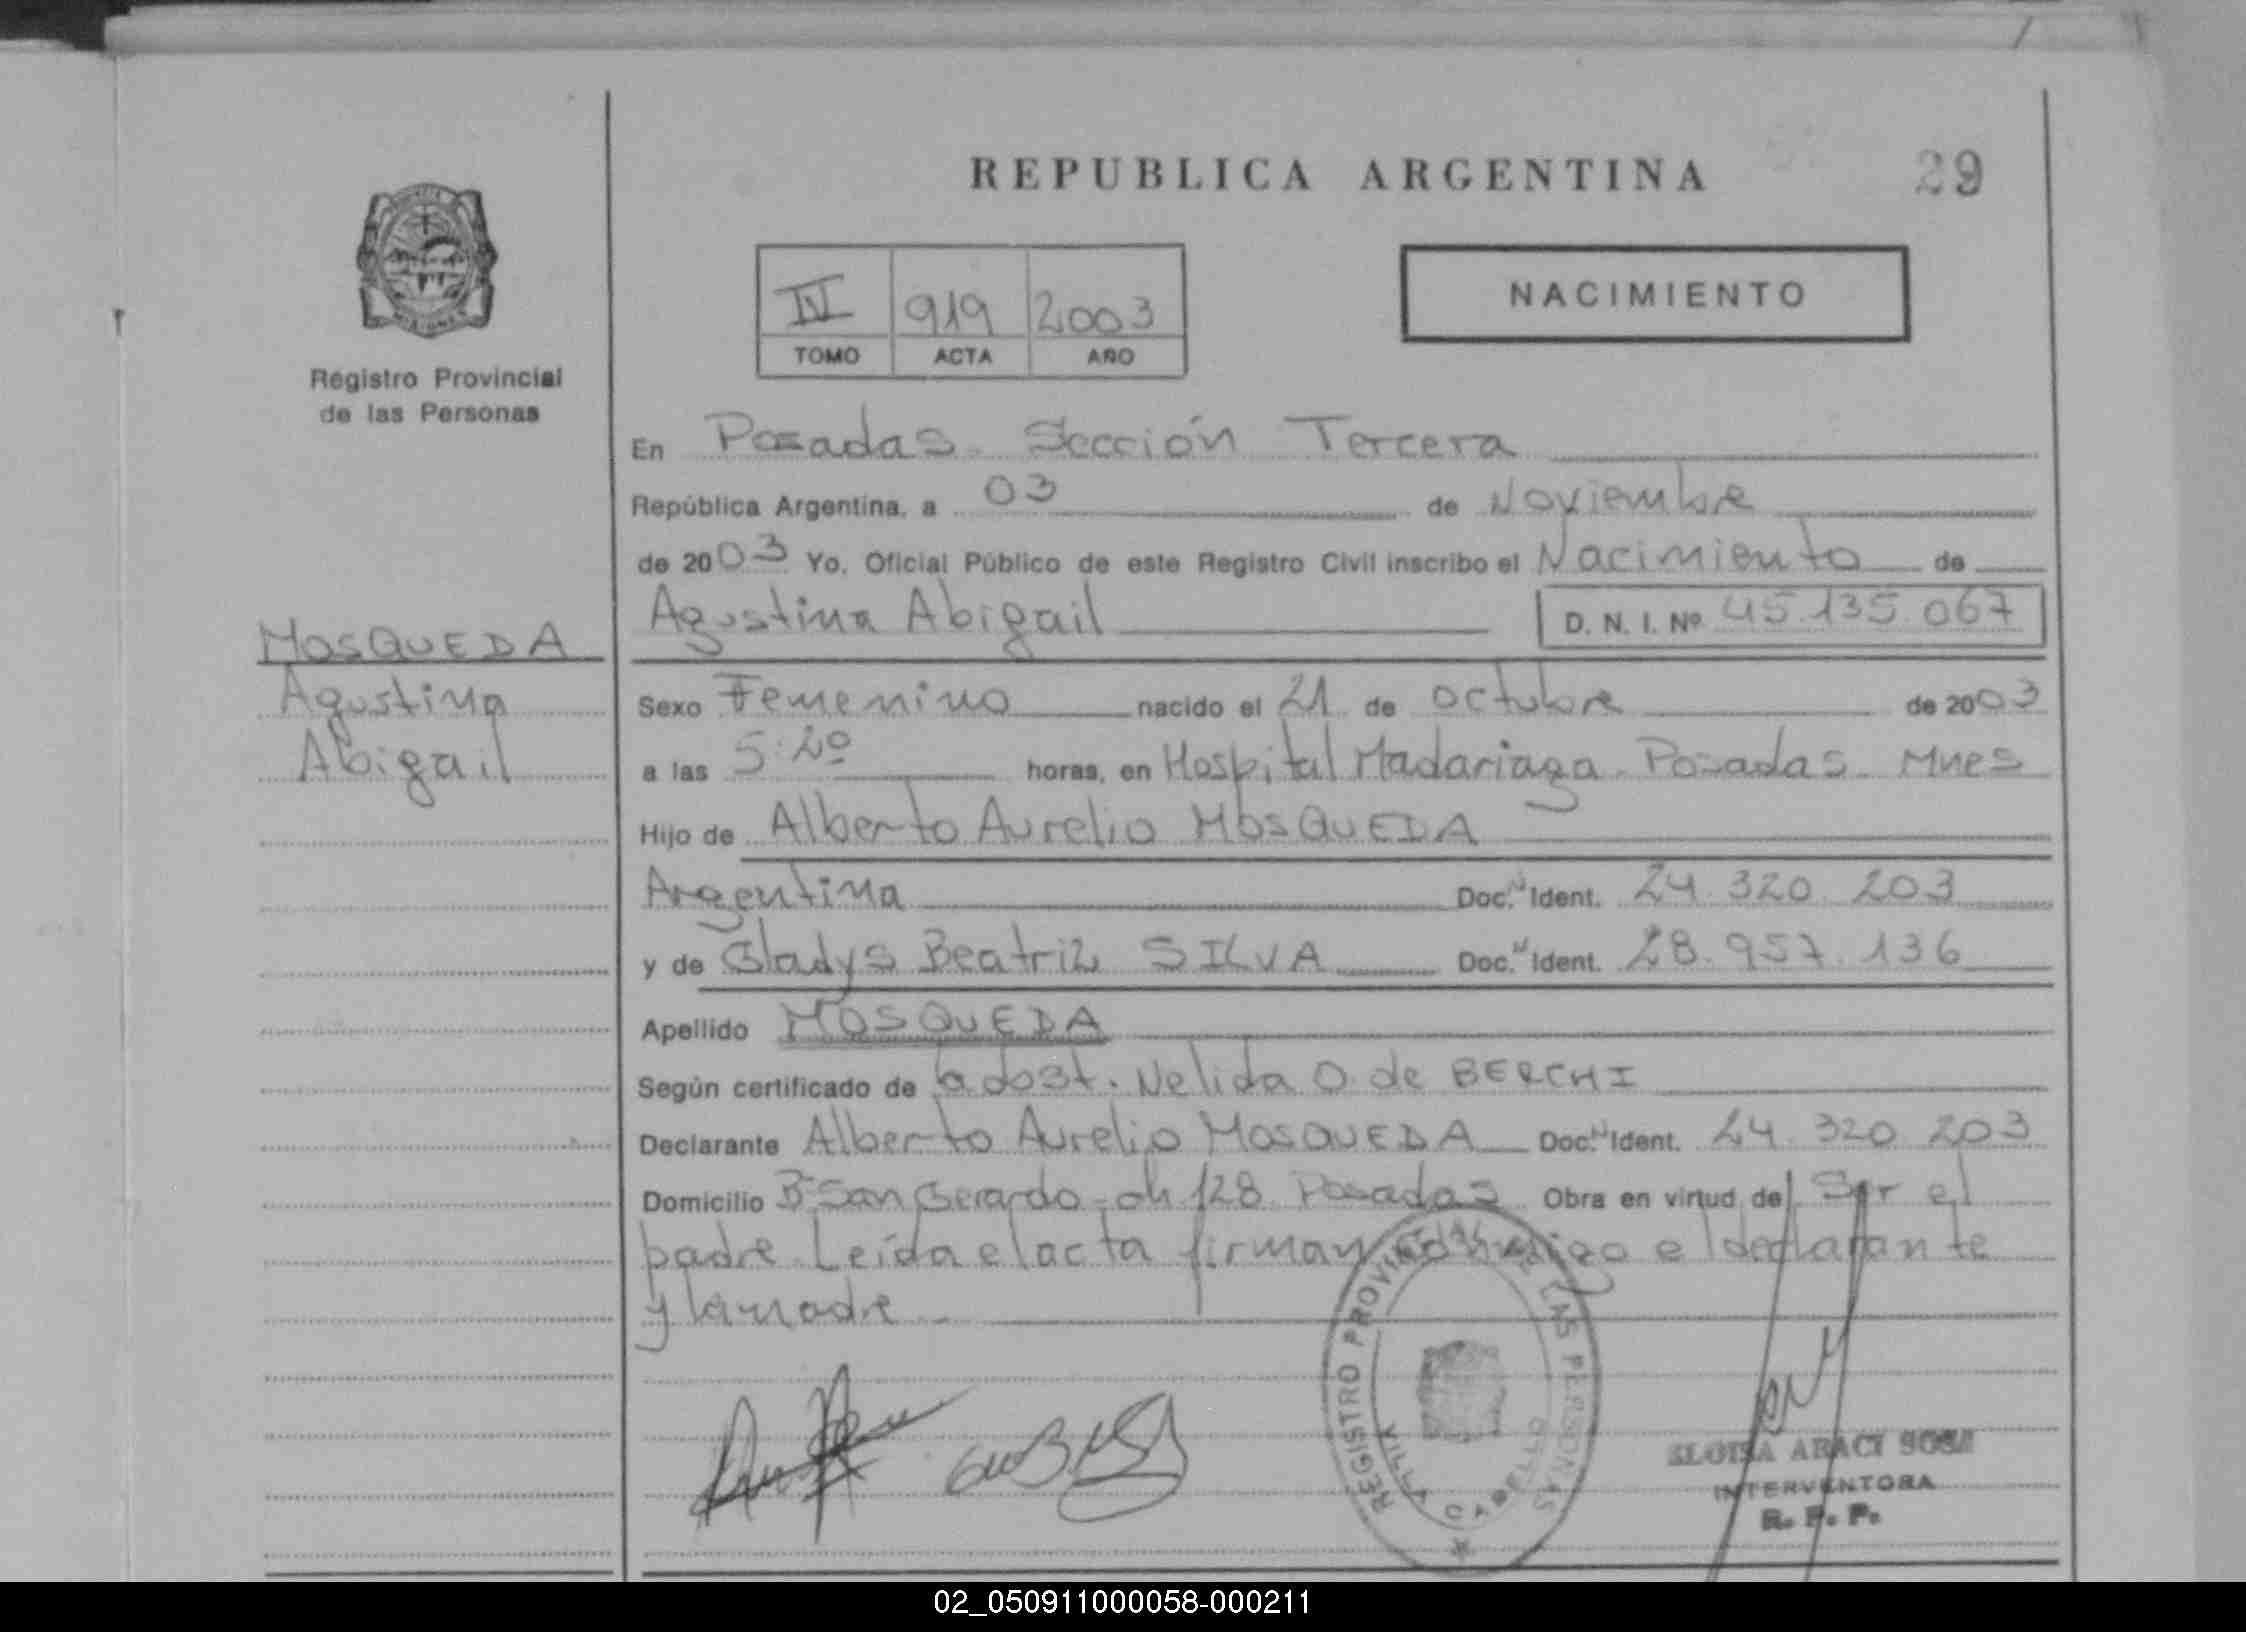 REPUBLICA ARGENTINA
29
NACIMIENTO
IV 919 2003
TOMO ACTA AÑO
Registro Provincial
de las Personas
En Posadas. Sección Tercera
República Argentina, a 03 de Noviembre
de 2003 Yo, Oficial Público de este Registro Civil inscribo el Nacimiento de
Agustina Abigail D. N. I. Nº 45.135.067
MOSQUEDA
Agustina
Abigail
Sexo Femenino nacido el 21 de octubre de 2003
a las 5:20 horas, en Hospital Madariaga. Posadas. Mnes
Hijo de Alberto Aurelio MOSQUEDA
Argentina Doc. N Ident. 24.320.203
y de Gladys Beatriz SILVA Doc. N Ident. 28.957.136
Apellido MOSQUEDA
Según certificado de Nelida O. de BERCHI
Declarante Alberto Aurelio MOSQUEDA Doc. N Ident. 24.320.203
Domicilio Bº San Gerardo ch 128 Posadas Obra en virtud de Ser el
padre. Leída el acta firman conmigo el declarante
y la madre
REGISTRO PROVINCIAL DE LAS PERSONAS
VILLA CABELLO
ELOISA ARACI SOSA
INTERVENTORA
R. P. P.
02_050911000058-000211